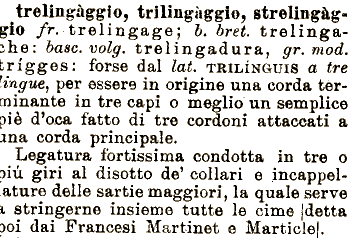 trelingàggio, trilingàggio, strelingàg-
gio fr. trelingage; b. bret. trelinga-
che: basc. volg. trelingadura, gr. mod.
trígges: forse dal lat. TRILÍNGUIS a tre
lingue, per essere in origine una corda ter-
minante in tre capi o meglio un semplice
piè d'oca fatto di tre cordoni attaccati a
una corda principale.
Legatura fortissima condotta in tre o
piú giri al disotto de' collari e incappel-
lature delle sartie maggiori, la quale serve
a stringerne insieme tutte le cime |detta
poi dai Francesi Martinet e Marticle|.